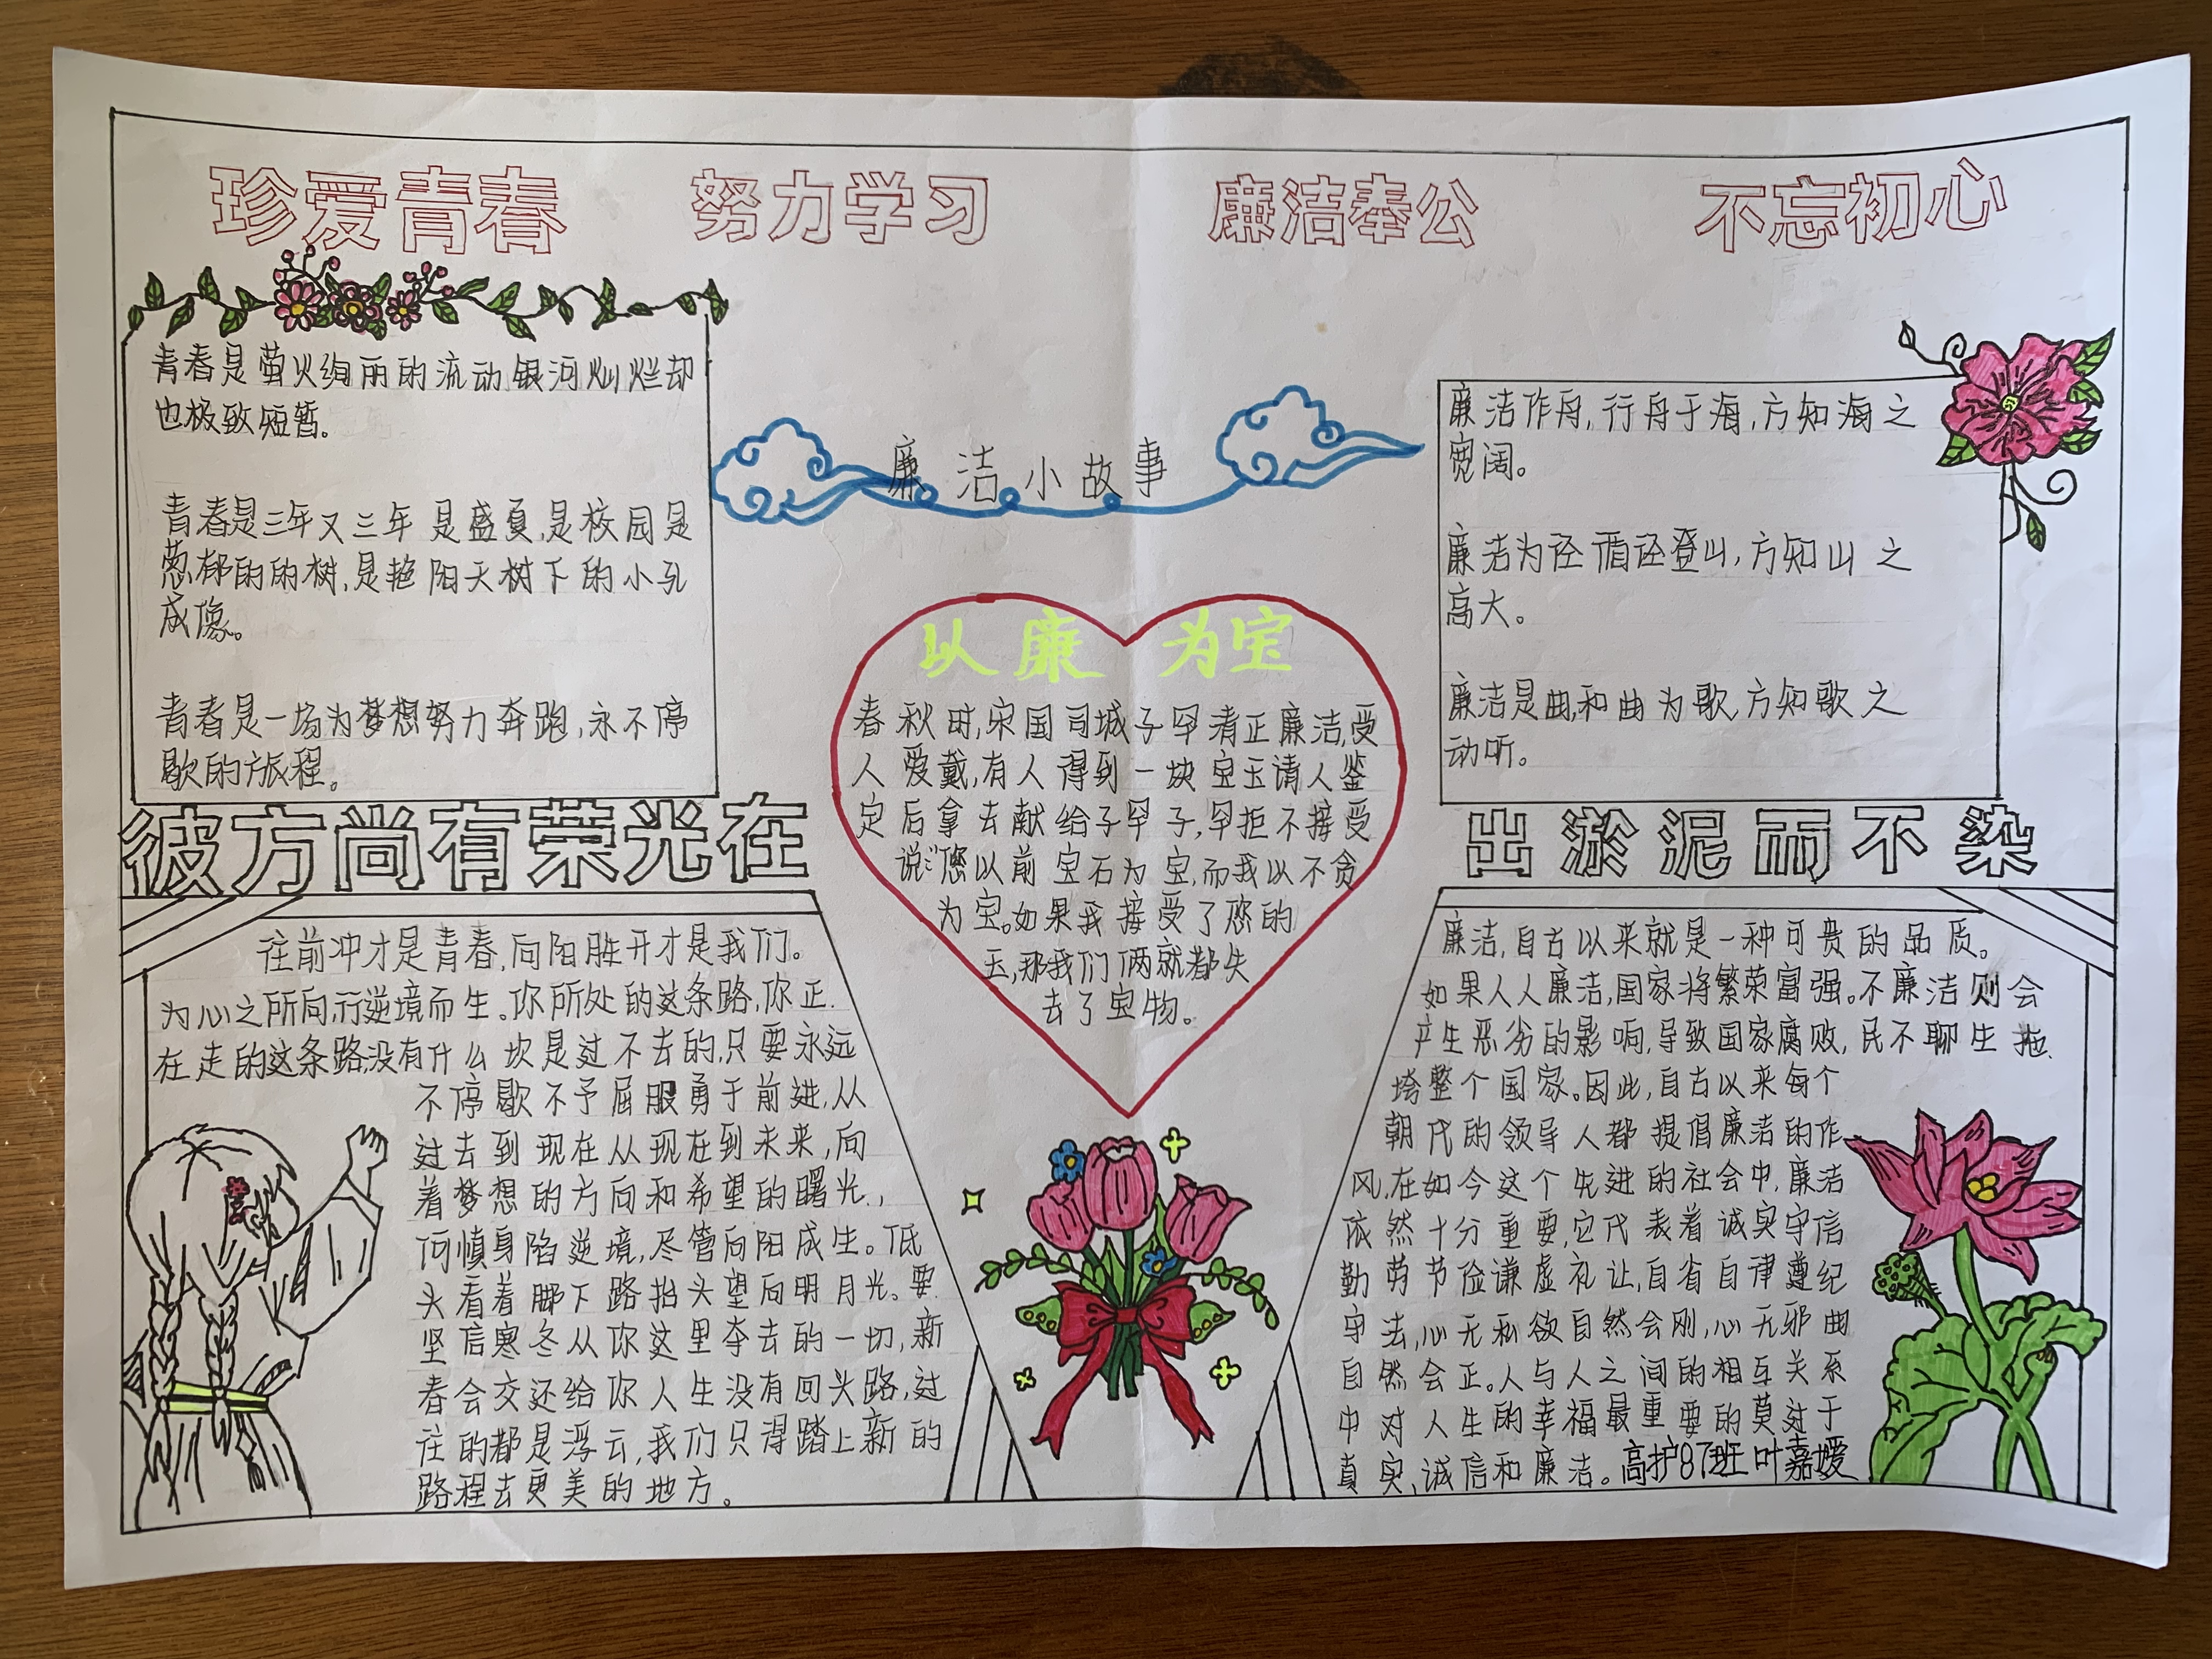 珍爱青春 努力学习 廉洁奉公 不忘初心
青春是萤火绚丽的流动银河灿烂却
也极致短暂。
青春是三年又三年是盛夏,是校园是
葱郁的的树,是艳阳天树下的小孔
成像。
青春是一场为梦想努力奔跑,永不停
歇的旅程。
彼方尚有荣光在
往前冲才是青春,向阳胜开才是我们。
为心之所向,行逆境而生。你所处的这条路,你正
在走的这条路,没有什么坎是过不去的,只要永远
不停歇不予屈服勇于前进,从
过去到现在从现在到未来,向
着梦想的方向和希望的曙光,
何慎身陷逆境,尽管向阳成生。低
头看着脚下路抬头望向明月光。要
坚信寒冬从你这里夺去的一切,新
春会交还给你人生没有回头路,过
往的都是浮云,我们只得踏上新的
路程去更美的地方。
廉洁小故事
以廉为宝
春秋时,宋国司城子罕清正廉洁,受
人爱戴,有人得到一块宝玉请人鉴
定后拿去献给子罕子,罕拒不接受
说:“您以前宝石为宝,而我以不贪
为宝。如果我接受了您的
玉,那我们俩就都失
去了宝物。
廉洁作舟,行舟于海,方知海之
宽阔。
廉洁为径循径登山,方知山之
高大。
廉洁是曲,和曲为歌,方知歌之
动听。
出淤泥而不染
廉洁,自古以来就是一种可贵的品质。
如果人人廉洁,国家将繁荣富强。不廉洁则会
产生恶劣的影响,导致国家腐败,民不聊生拖
垮整个国家。因此,自古以来每个
朝代的领导人都提倡廉洁的作
风,在如今这个先进的社会中,廉洁
依然十分重要,它代表着诚实守信
勤劳节俭谦虚礼让,自省自律遵纪
守法,心无私欲自然会刚,心无邪曲
自然会正。人与人之间的相互关系
中对人生的幸福最重要的莫过于
真实,诚信和廉洁。高护87班叶嘉媛